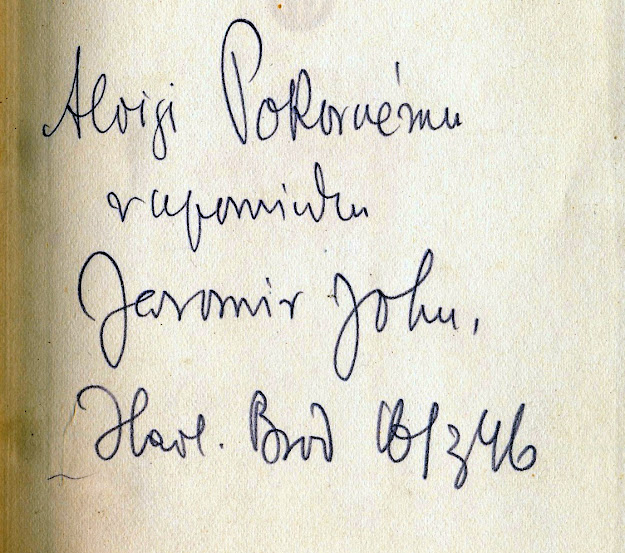 Aloisi Pokornému
vzpomínku
Jaromír John,
Havl. Brod 16/3 46